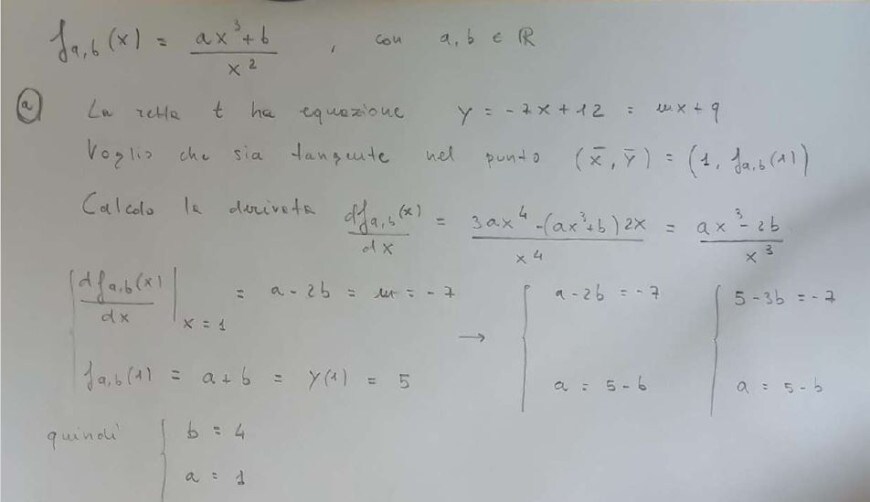 f_{a,b}(x) = \frac{ax^3+b}{x^2} , con a,b ∈ ℝ
a) La retta t ha equazione y = -7x+12 = mx+q
Voglio che sia tangente nel punto (x̄, ȳ) = (1, f_{a,b}(1))
Calcolo la derivata \frac{df_{a,b}(x)}{dx} = \frac{3ax^4-(ax^3+b)2x}{x^4} = \frac{ax^3-2b}{x^3}
\frac{df_{a,b}(x)}{dx} |_{x=1} = a-2b = m = -7 → { a-2b = -7 { 5-3b = -7
f_{a,b}(1) = a+b = y(1) = 5 a = 5-b a = 5-b
quindi { b = 4
a = 1